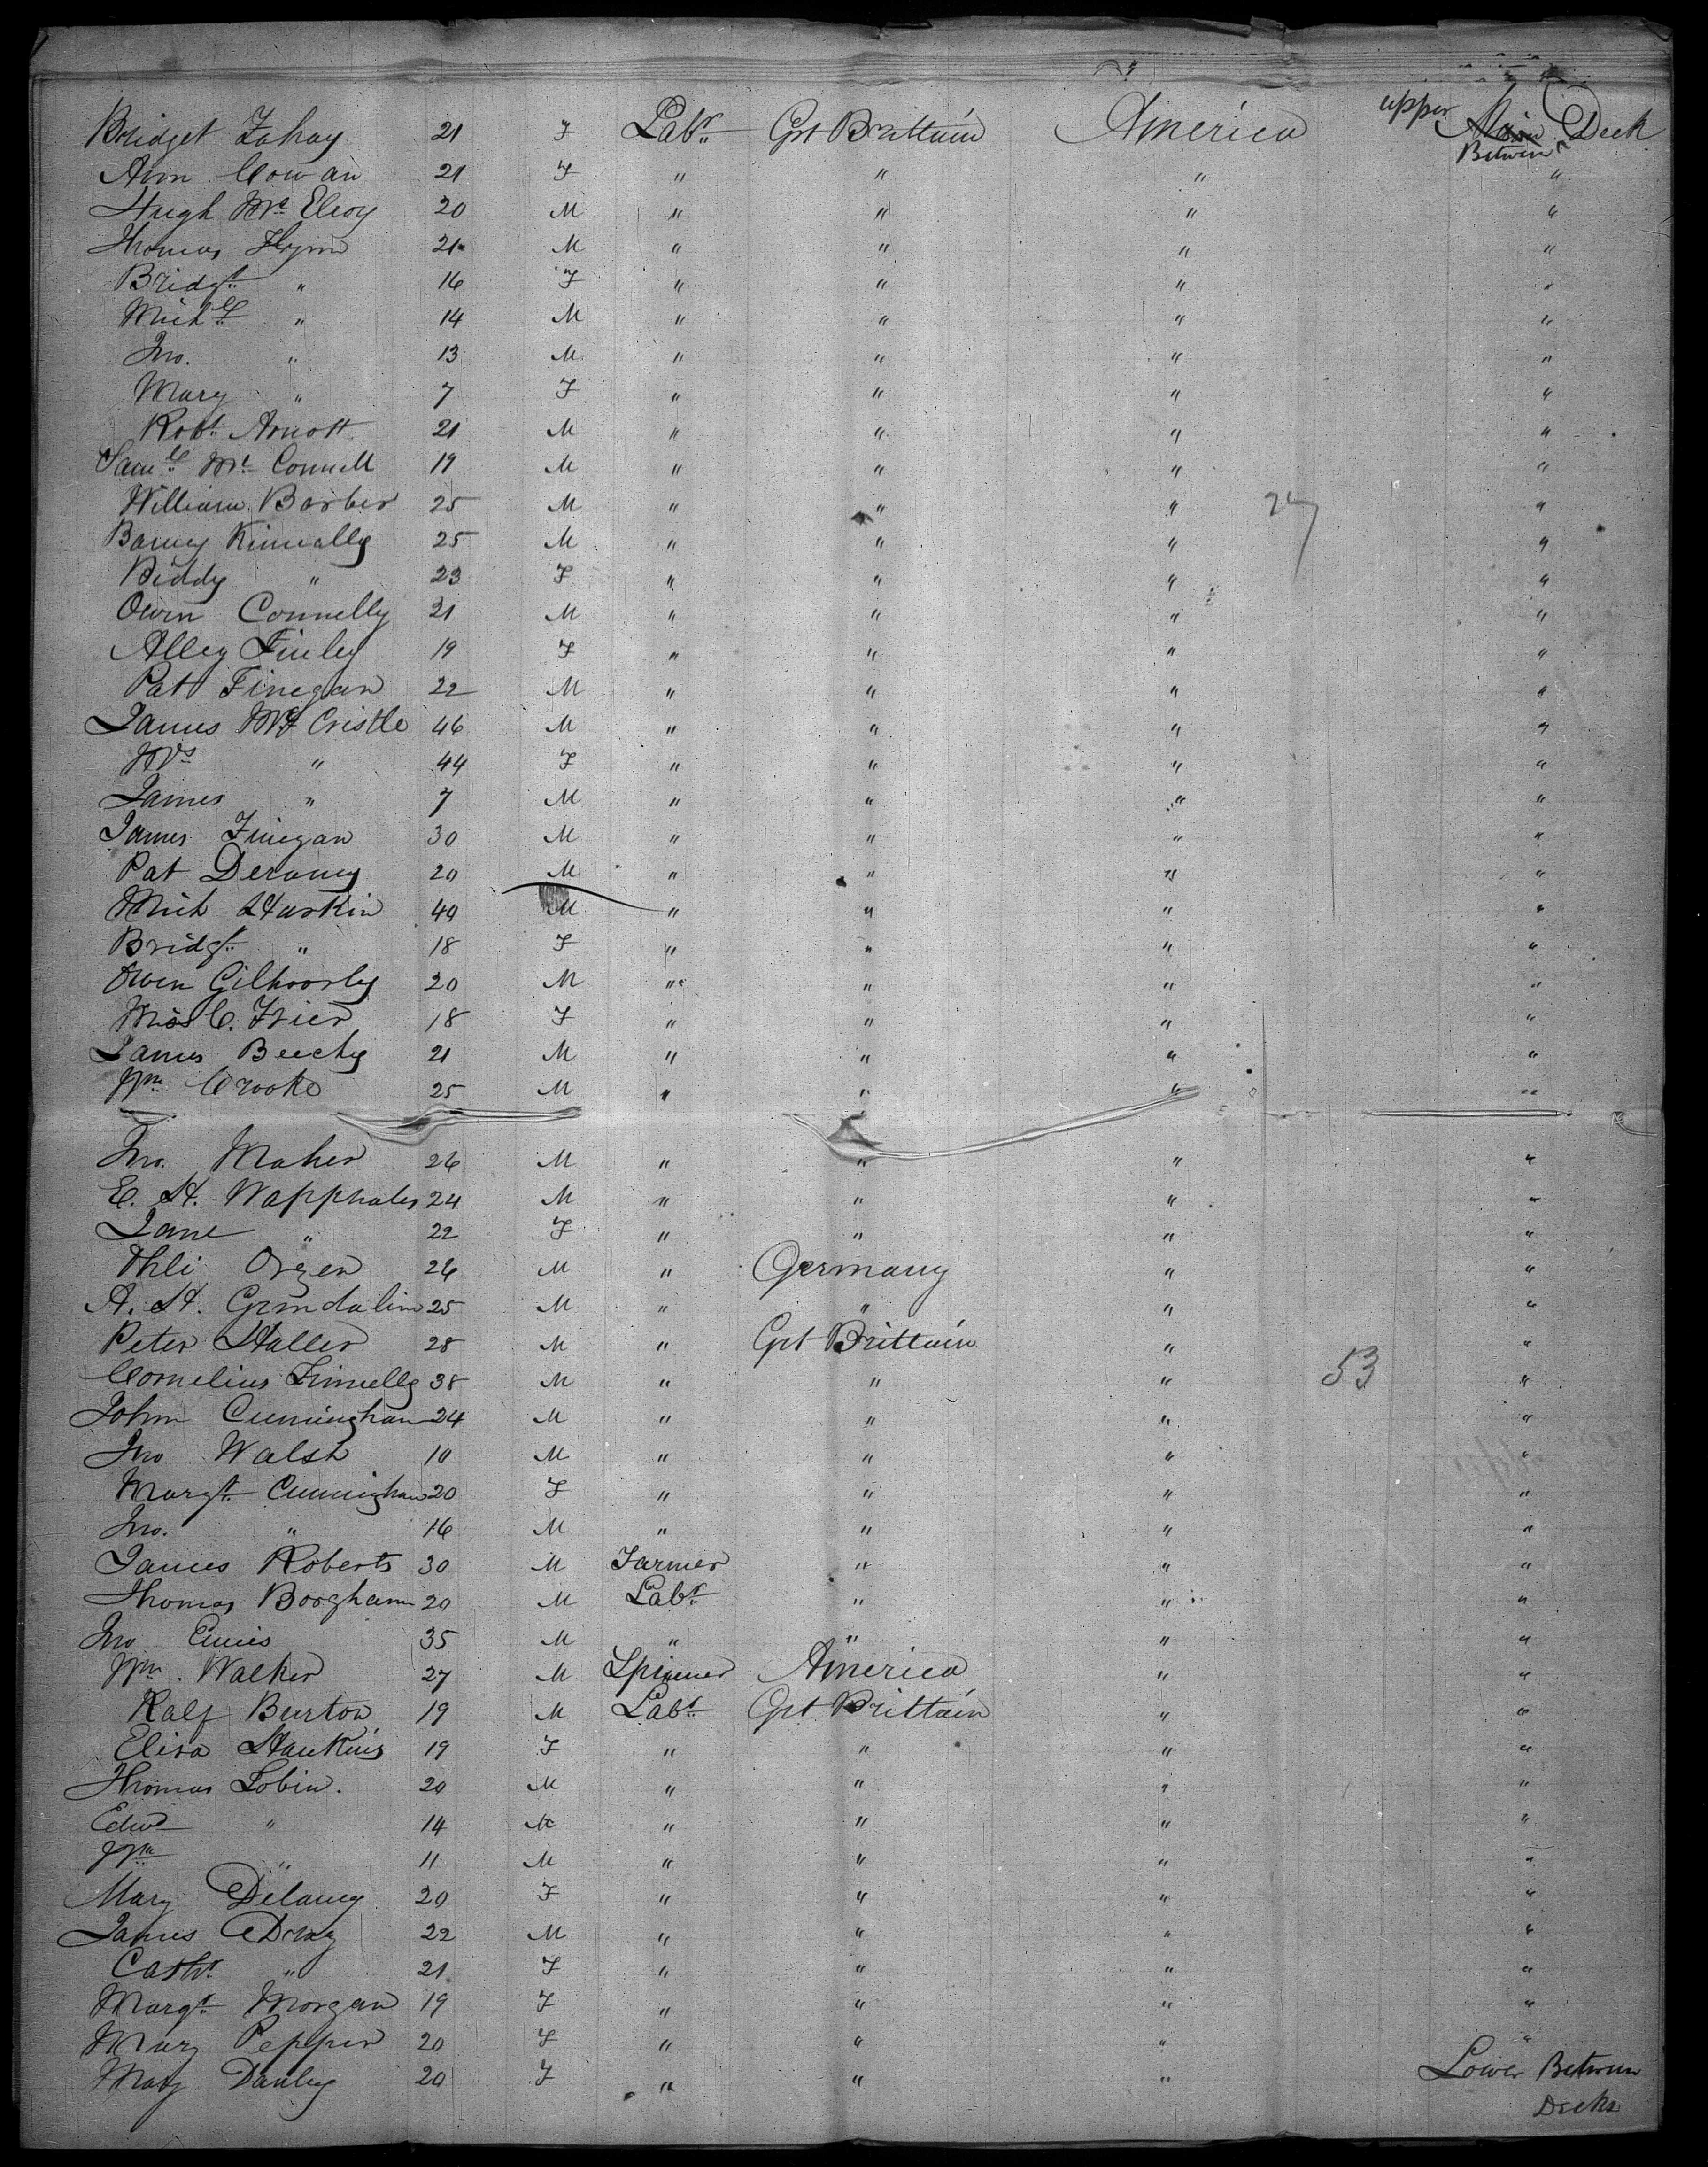 Bridget Fahay 21 F Labr. Grt Brittain America upper Main Deck
Between
Ann Cowan 21 F " " " "
Hugh McElroy 20 M " " " "
Thomas Flynn 21 M " " " "
Bridgt. " 16 F " " " "
Michl. " 14 M " " " "
Jno. " 13 M " " " "
Mary " 7 F " " " "
Robt. Arnott 21 M " " " "
Saml. McConnell 19 M " " " "
William Barber 25 M " " " 27 "
Barney Kinnally 25 M " " " "
Biddy " 23 F " " " "
Owen Connelly 21 M " " " "
Alley Finley 19 F " " " "
Pat Finegan 22 M " " " "
James Mc Cristle 46 M " " " "
Mrs " 44 F " " " "
James " 7 M " " " "
James Finegan 30 M " " " "
Pat Deramy 20 M " " " "
Mich Harkin 40 M " " " "
Bridgt. " 18 F " " " "
Owen Gilhoorley 20 M " " " "
Miss C. Frier 18 F " " " "
James Beechy 21 M " " " "
Wm. Crooke 25 M " " " "
Jno. Maher 26 M " " " "
E. H. Wapphales 24 M " " " "
Jane " 22 F " " " "
Thli Orgen 26 M " Germany " "
A. H. Grindalin 25 M " " " "
Peter Haller 28 M " Grt Brittain " "
Cornelius Finnelly 38 M " " " 53 "
John Cuningham 24 M " " " "
Jno Walsh 10 M " " " "
Margt. Cunnigham 20 F " " " "
Jno. " 16 M " " " "
James Roberts 30 M Farmer " " "
Thomas Boogham 20 M Labr. " " "
Jno Ennis 35 M " " " "
Wm. Walker 27 M Spinner America " "
Ralf Burton 19 M Labr. Grt Brittain " "
Elisa Hankins 19 F " " " "
Thomas Tobin. 20 M " " " "
Edwd " 14 M " " " "
Wm. " 11 M " " " "
Mary Delaney 20 F " " " "
James 22 M " " " "
Cathr. " 21 F " " " "
Margt. Morgan 19 F " " " "
Mary Pepper 20 F " " " "
Mary Danley 20 F " " " Lower Between
Decks